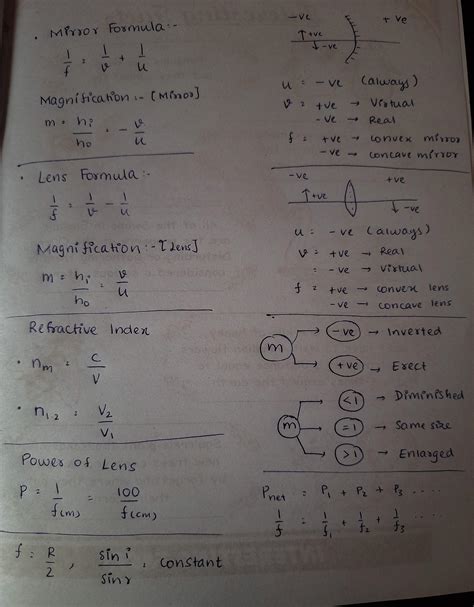 • Mirror Formula:-
1/f = 1/v + 1/u
Magnification:- [Mirror]
m = hi/ho = -v/u
-ve +ve
↑+ve
↓-ve
u = -ve (always)
v = +ve → Virtual
-ve → Real
f = +ve → convex mirror
-ve → concave mirror
• Lens Formula:-
1/f = 1/v - 1/u
Magnification:- [Lens]
m = hi/ho = v/u
-ve +ve
↑+ve
↓-ve
u = -ve (always)
v = +ve → Real
= -ve → virtual
f = +ve → convex lens
-ve → concave lens
Refractive Index
• nm = c/v
• n1.2 = V2/V1
m → -ve → Inverted
→ +ve → Erect
m → <1 → Diminished
→ =1 → Same size
→ >1 → Enlarged
Power of Lens
P = 1/f(m) = 100/f(cm)
Pnet = P1 + P2 + P3 ....
1/f = 1/f1 + 1/f2 + 1/f3 ....
f = R/2 , sin i/sin r = constant